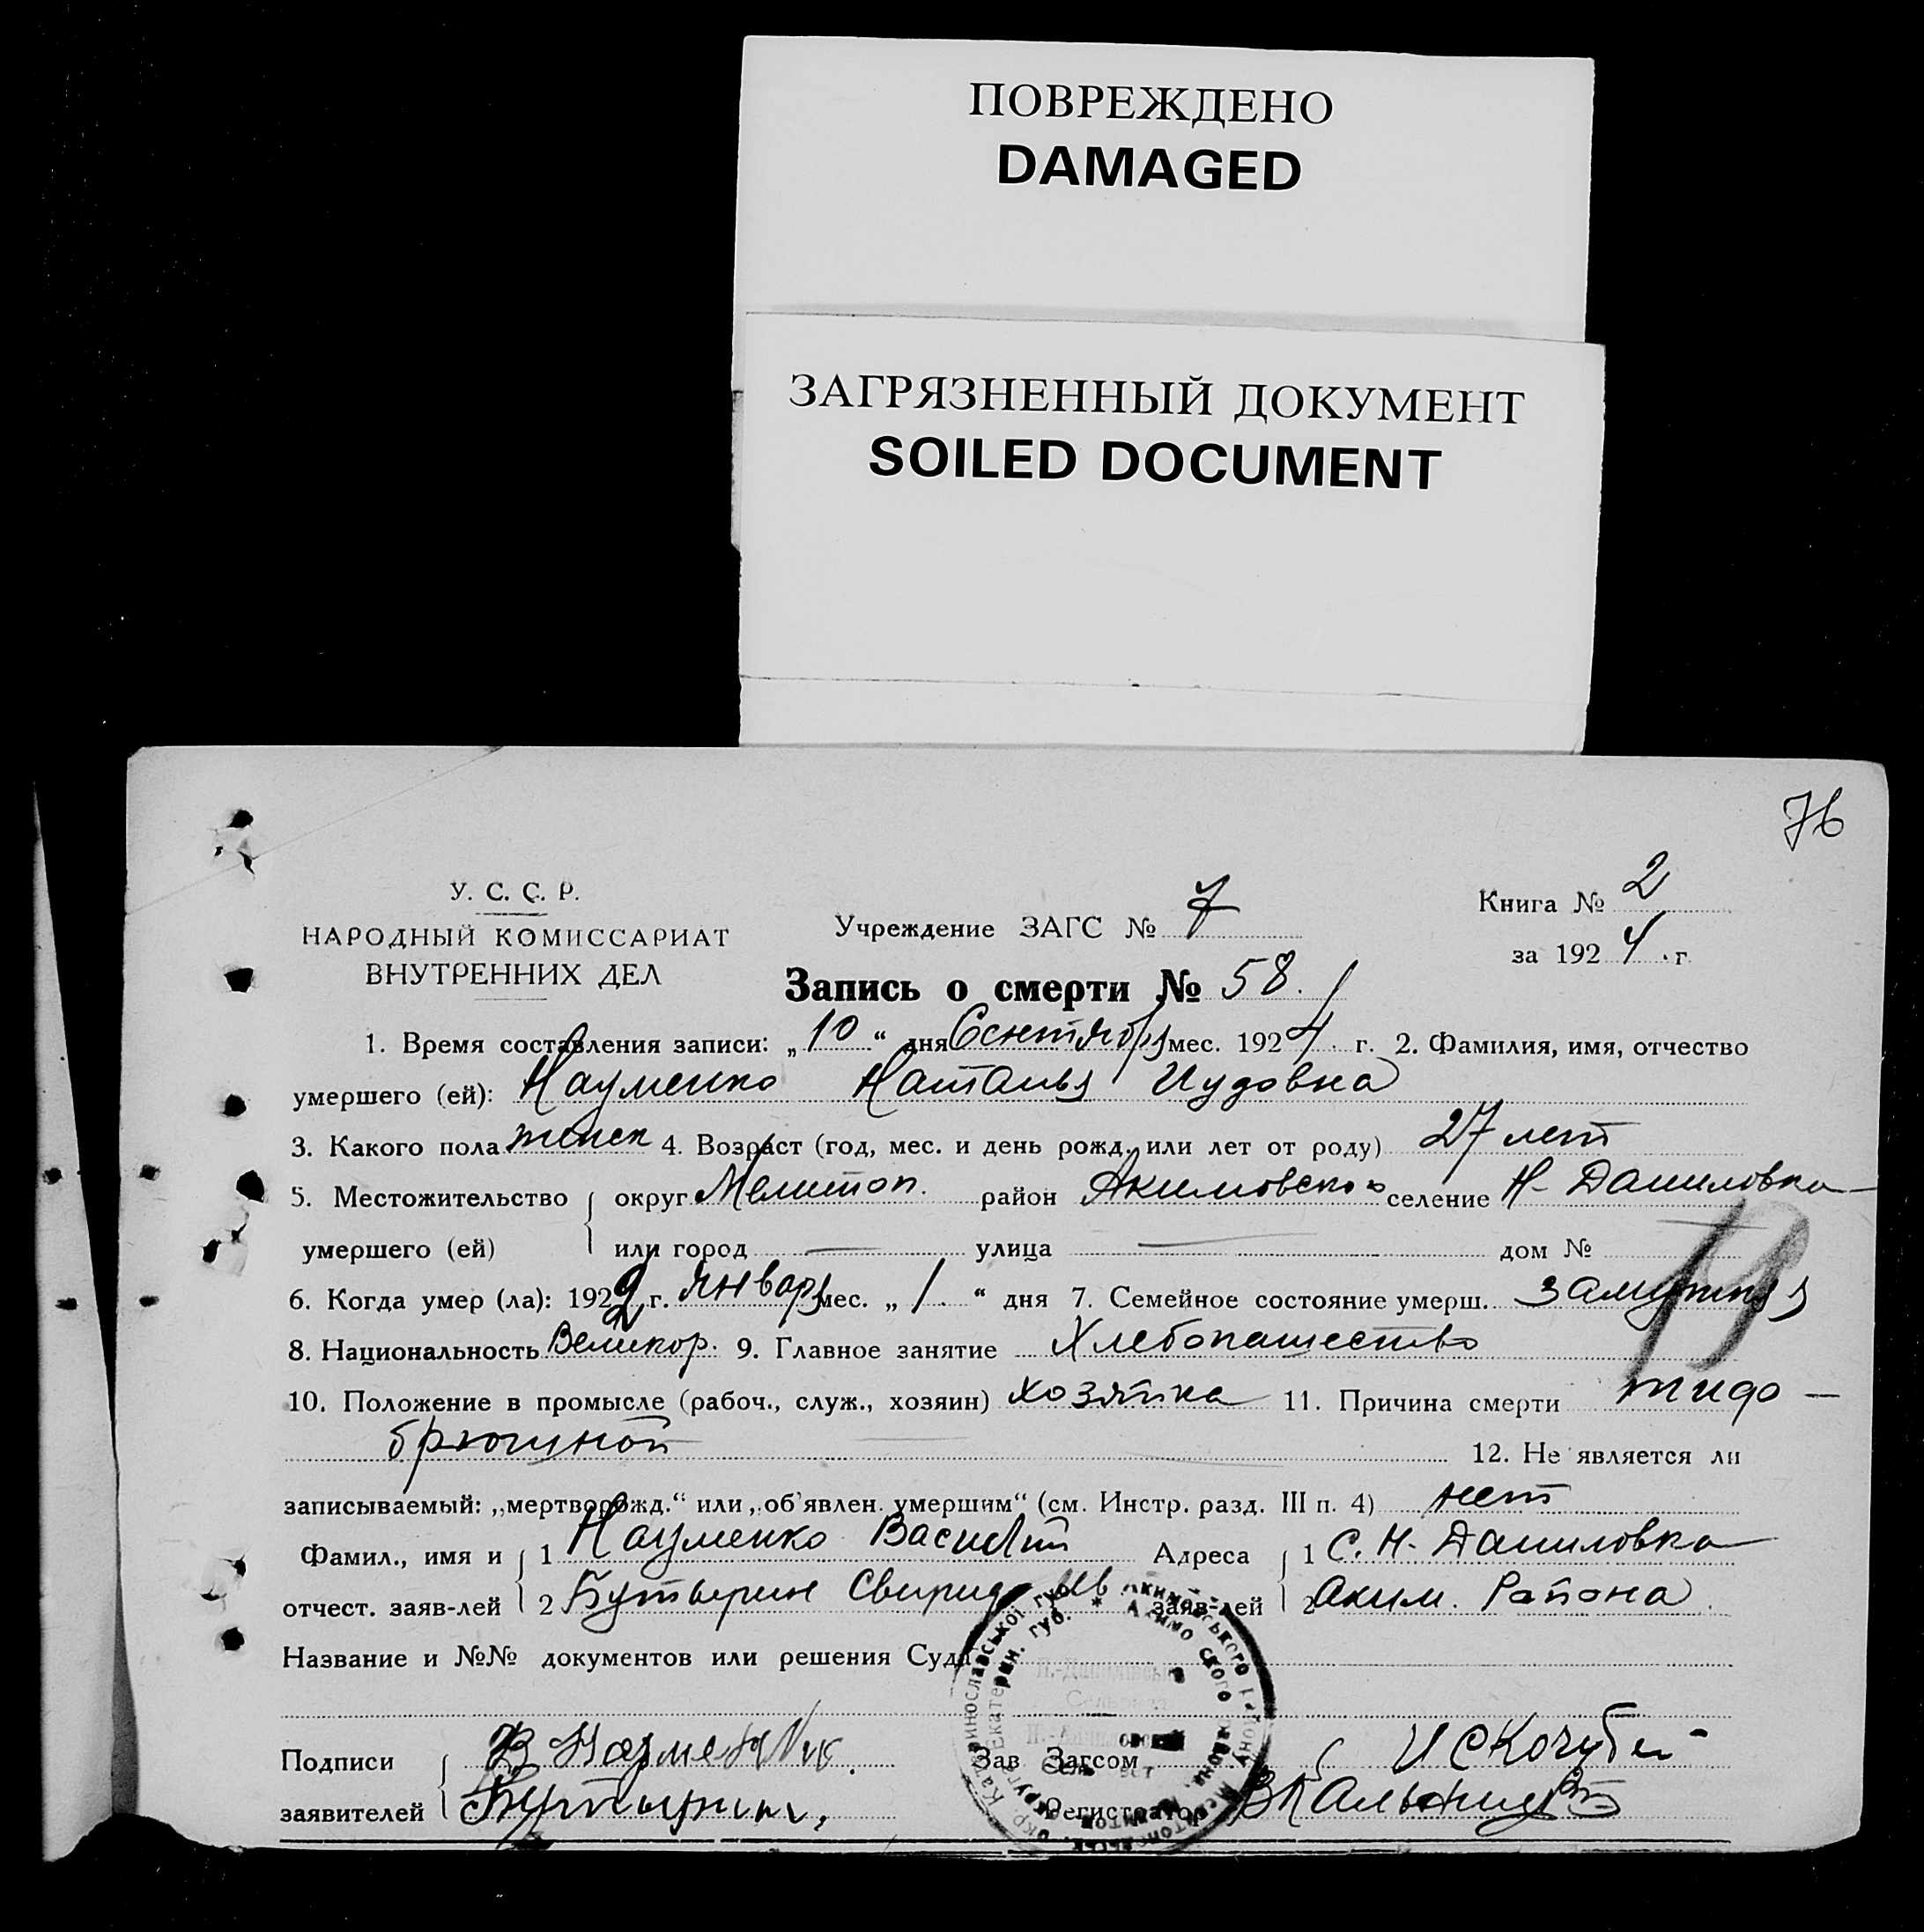 ПОВРЕЖДЕНО
DAMAGED
ЗАГРЯЗНЕННЫЙ ДОКУМЕНТ
SOILED DOCUMENT
76
У. С. С. Р.
НАРОДНЫЙ КОМИССАРИАТ
ВНУТРЕННИХ ДЕЛ
Учреждение ЗАГС № 7
Книга № 2
за 1924 г.
Запись о смерти № 58.
1. Время составления записи: „10“ дня Сентября мес. 1924 г. 2. Фамилия, имя, отчество
умершего (ей): Науменко Наталья Иудовна
3. Какого пола женск 4. Возраст (год, мес. и день рожд. или лет от роду) 27 лет
5. Местожительство округ Мелитоп. район Акимовского селение Н-Даниловка
умершего (ей) или город — улица — дом №
6. Когда умер (ла): 1922 г. января мес. „1“ дня 7. Семейное состояние умерш. замужняя
8. Национальность Великор. 9. Главное занятие Хлебопашество
10. Положение в промысле (рабоч., служ., хозяин) хозяйка 11. Причина смерти тифо-
брюшной 12. Не является ли
записываемый: „мертворожд.“ или „об'явлен. умершим“ (см. Инстр. разд. III п. 4) нет
Фамил., имя и 1 Науменко Василий Адреса 1 С. Н-Даниловка
отчест. заяв-лей 2 Бутырин Свирид Ив заяв-лей 2 Аким. Района
Название и №№ документов или решения Суда
Подписи В Науменко Зав Загсом И С Кочубей
заявителей Бутырин Регистратор